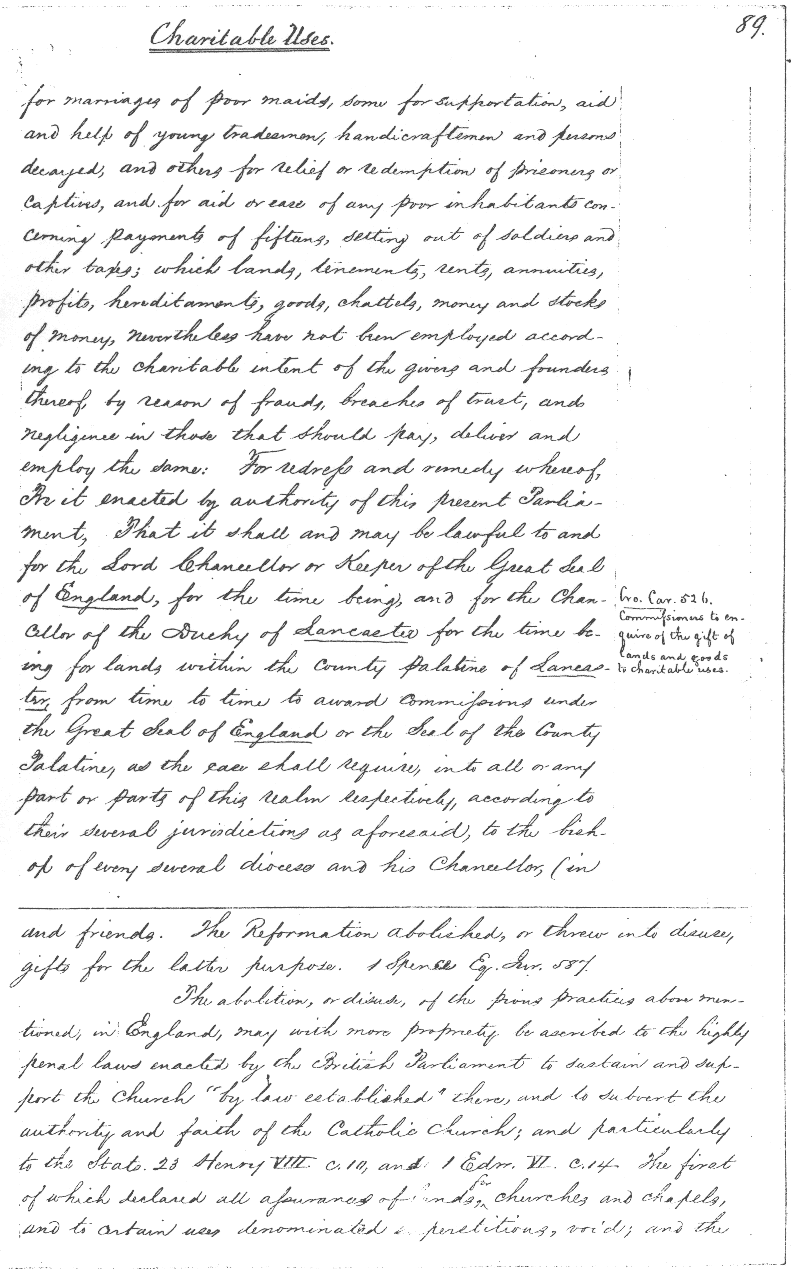 89.
Charitable Uses.
for marriages of poor maids, some for supportation, aid
and help of young tradesmen, handicraftsmen and persons
decayed, and others for relief or redemption of prisoners or
captives, and for aid or ease of any poor inhabitants con-
cerning payments of fifteens, setting out of soldiers and
other taxes; which lands, tenements, rents, annuities,
profits, hereditaments, goods, chattels, money and stocks
of money, nevertheless have not been employed accord-
ing to the charitable intent of the givers and founders
thereof, by reason of frauds, breaches of trust, and
negligence in those that should pay, deliver and
employ the same: For redress and remedy whereof,
Be it enacted by authority of this present Parlia-
ment, That it shall and may be lawful to and
for the Lord Chancellor or Keeper of the Great Seal
of England, for the time being, and for the Chan-
cellor of the Duchy of Lancaster for the time be-
ing for lands within the County palatine of Lancas-
ter, from time to time to award commissions under
the Great Seal of England or the Seal of the County
Palatine, as the case shall require, into all or any
part or parts of this realm respectively, according to
their several jurisdictions as aforesaid, to the bish-
op of every several diocess and his Chancellor, (in
Cro. Car. 526.
Commissioners to en-
quire of the gift of
lands and goods
to charitable uses.
and friends. The Reformation abolished, or threw into disuse,
gifts for the latter purpose. 1 Spence Eq. Jur. 587.
The abolition, or disuse, of the pious practices above men-
tioned, in England, may with more propriety be ascribed to the highly
penal laws enacted by the British Parliament to sustain and sup-
port the church "by law established" there, and to subvert the
authority and faith of the Catholic Church; and particularly
to the Stats. 23 Henry VIII c. 10, and 1 Edw. VI. c. 14. The first
of which declared all assurances of lands, for churches and chapels,
and to certain uses denominated superstitious, void; and the